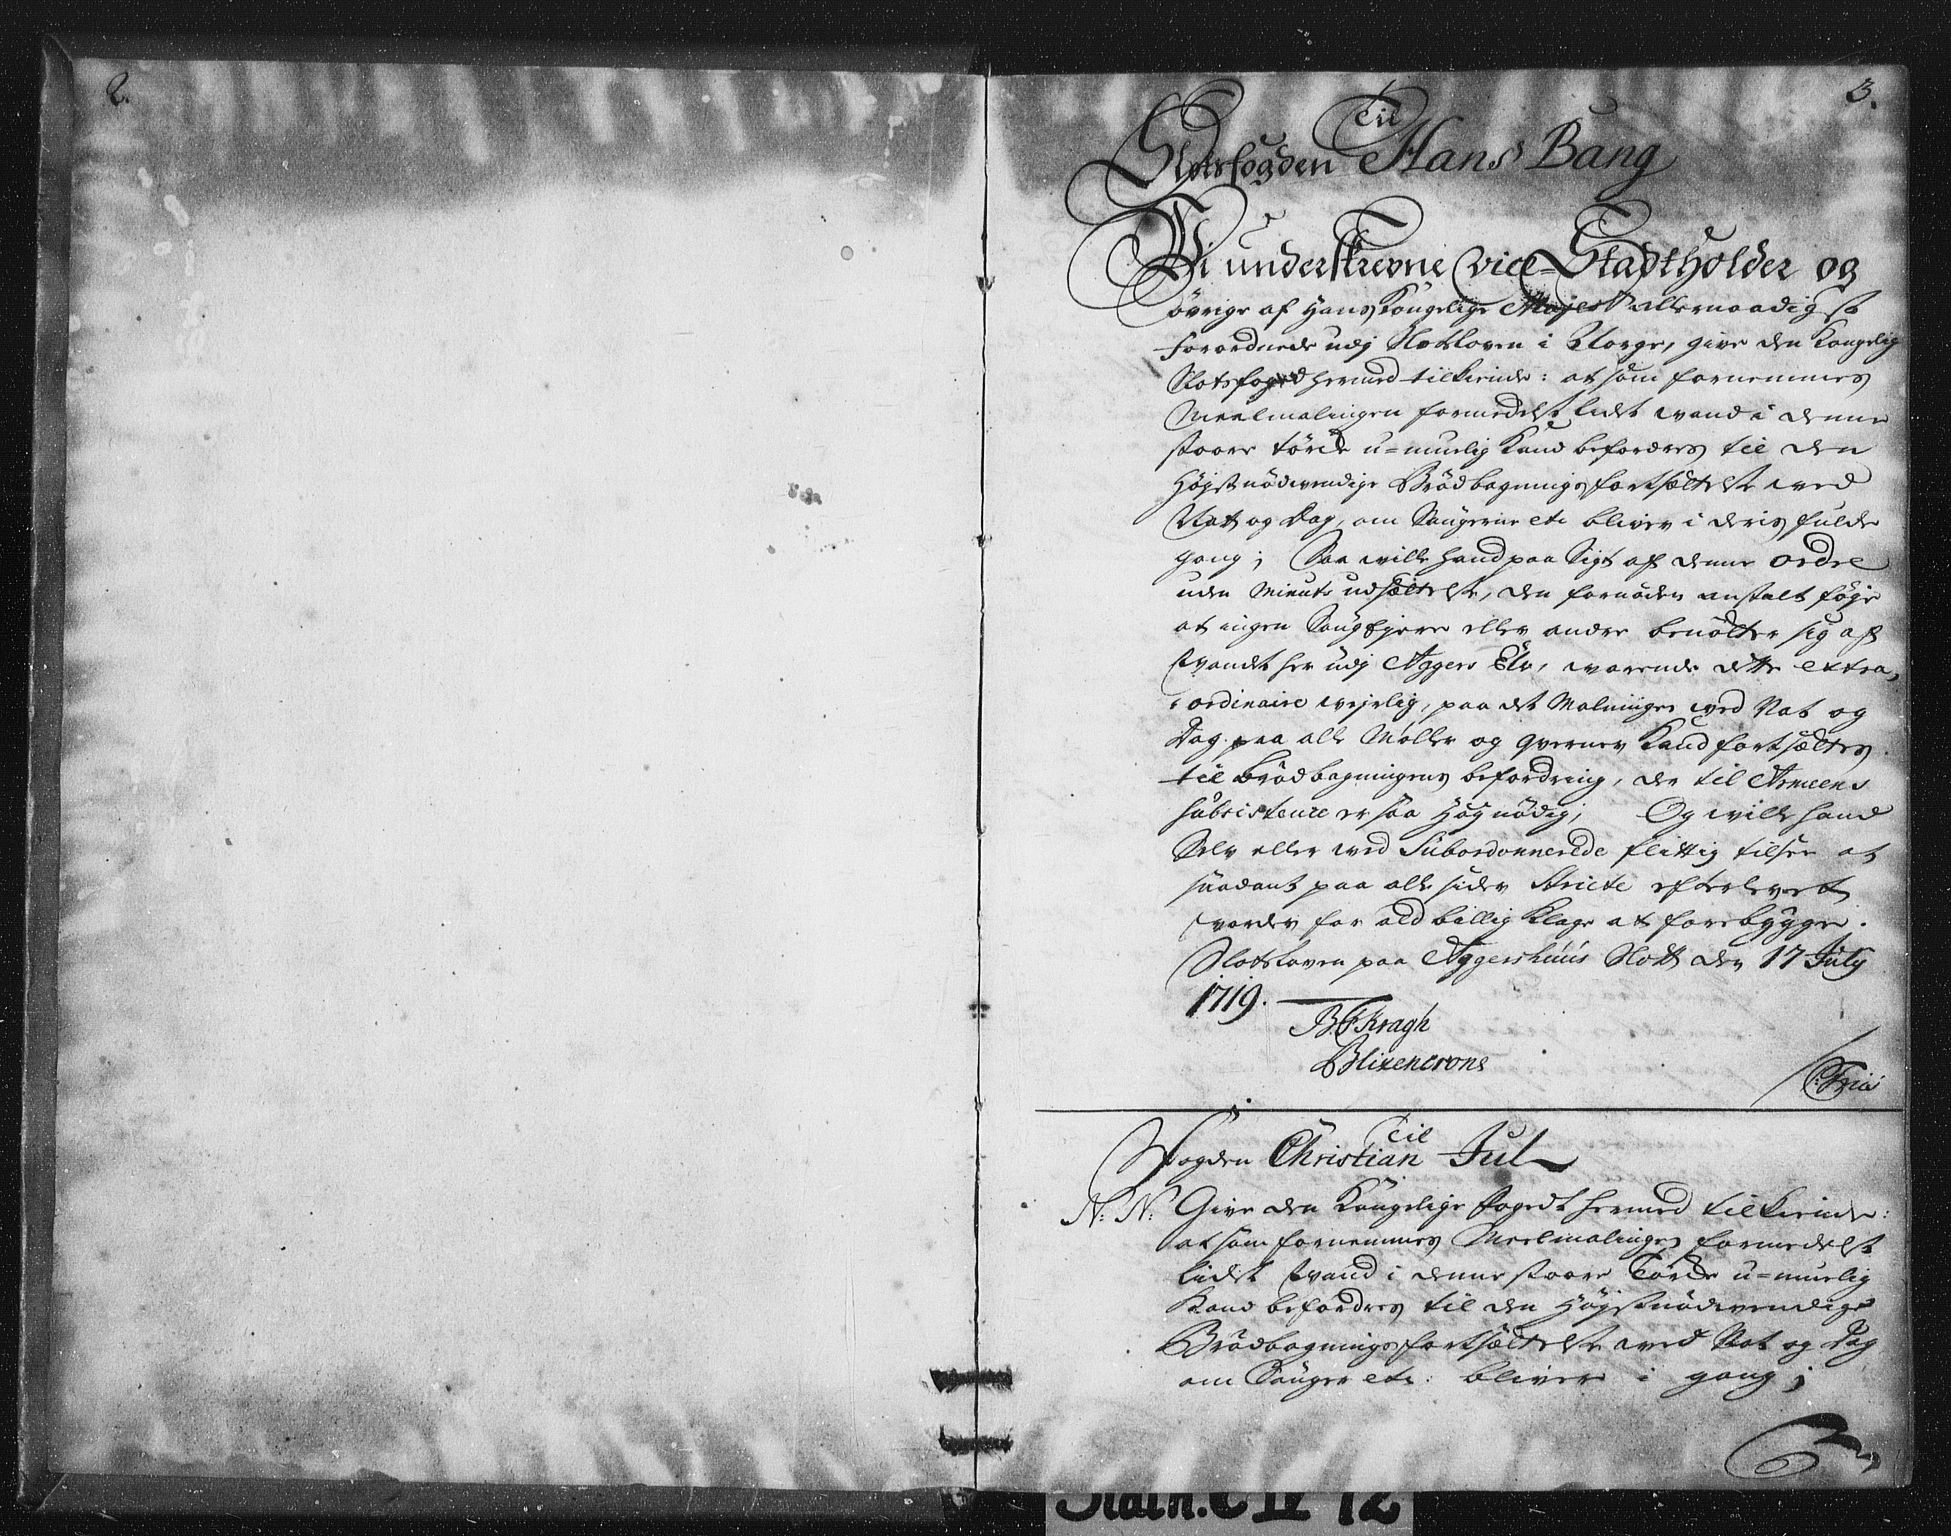 2.
3.
Til
Slotsfogden Hans Bang
Vi underskrevne Vice-Stadtholder og
øvrige af Hans Kongelige Majest allernaadigst
forordnede udj Slotsloven i Norge, give den Kongelig
Slotsfoged hermed tilkiende: at som fornemmes
Meelmalingen formedelst lidet vand i denne
stoere törcke u-muelig kand befordres til den
Høystnödvendige Brödbagnings fortsættelse ved
Nat og Dag, om Saugerne etc bliver i deris fulde
gang; Saa ville hand paa Sigt af denne ordre
uden Minuts udsættelse, den fornøden anstalt føje
at ingen Saugejere eller andre benötter sig af
Vandet her udj Aggers Elv, warende dette extra-
ordinaire vejrlig, paa det Malninger ved Nat og
Dag paa alle Møller og qverner kand fortsættes
til brödbagningens befordring, der til Armeens
subsistence er saa Høynödig; Og wille hand
Selv eller ved Subordonnerede flittig tilsee at
saadant paa alle sider Stricte efterlevet
vorder for ald billig klage at forebygge.
Slotsloven paa Aggershuus Slott den 17 July
1719.
B. Kragh
Blixencrone
C: Friis
Til
Fogden Christian Jul
N: N: Give den Kongelige foget hermed tilkiende:
at som fornemmes Meelmalinger formedelst
lidet Vand i denne stoore Törcke u-muelig
kand befordres til den Høystnödvendige
Brödbagnings fortsættelse ved Nat og Dag
om Sauger etc: bliver i gang;
Stath. C IV 12